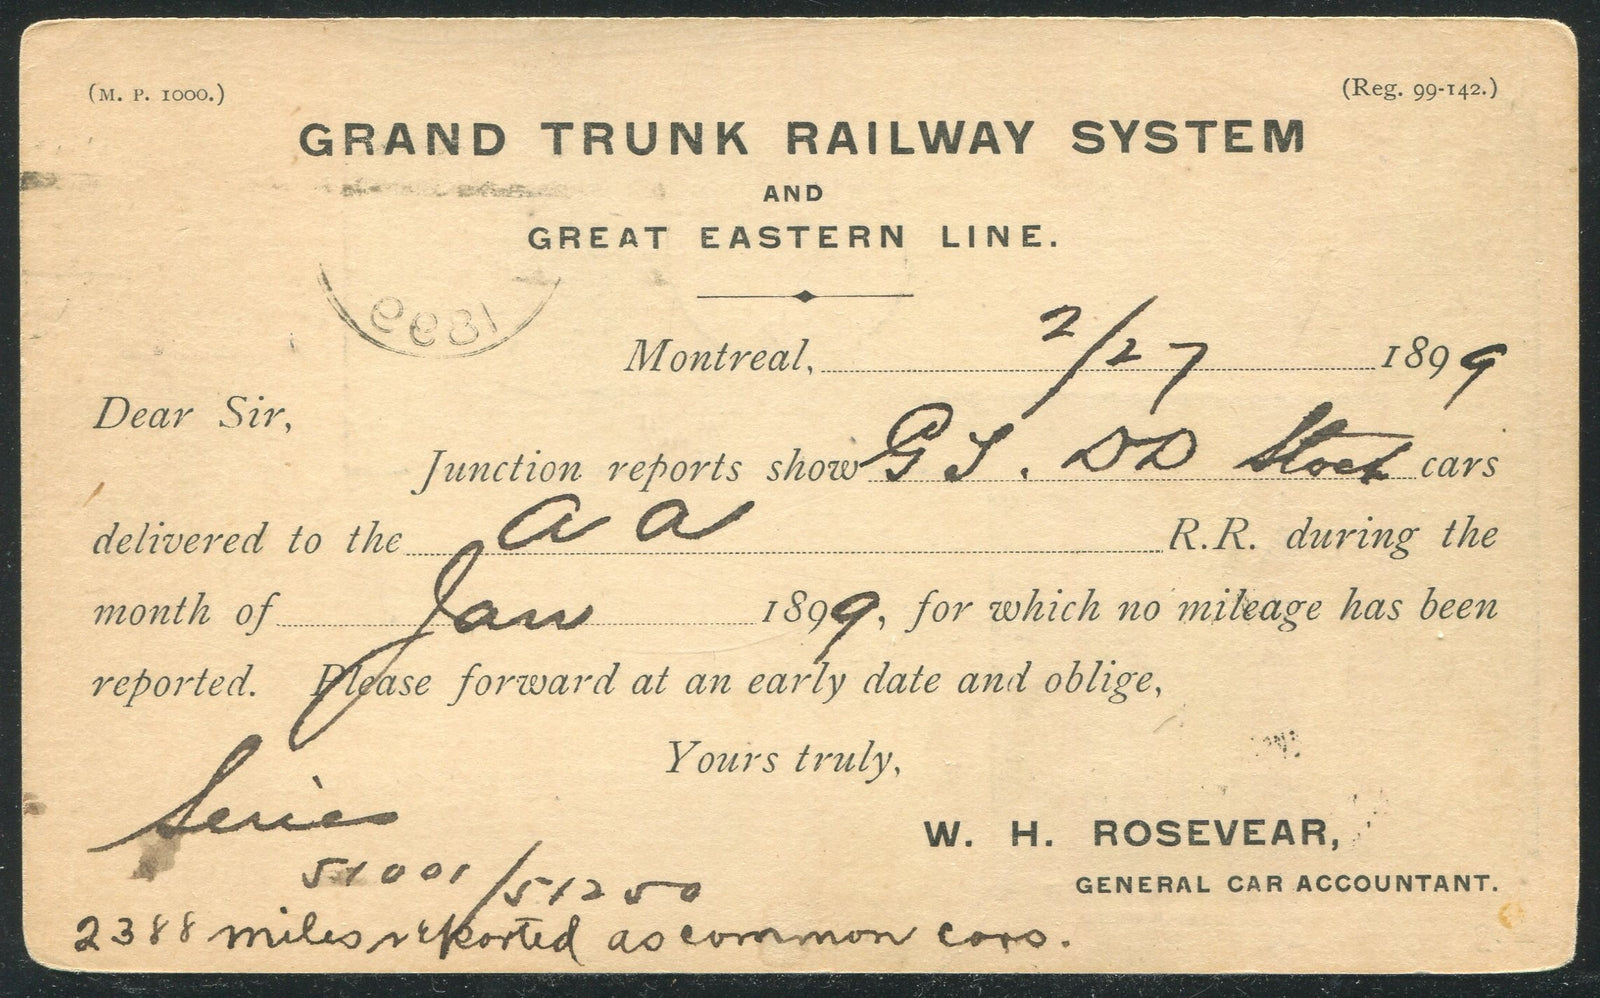 (M. P. 1000.)
(Reg. 99-142.)
GRAND TRUNK RAILWAY SYSTEM
AND
GREAT EASTERN LINE.
1899
Montreal, 2/27 1899
Dear Sir,
Junction reports show G T. DD Stock cars
delivered to the a a R.R. during the
month of Jan 1899, for which no mileage has been
reported. Please forward at an early date and oblige,
Yours truly,
W. H. ROSEVEAR,
GENERAL CAR ACCOUNTANT.
Series
51001/51250
2388 miles reported as common cars.